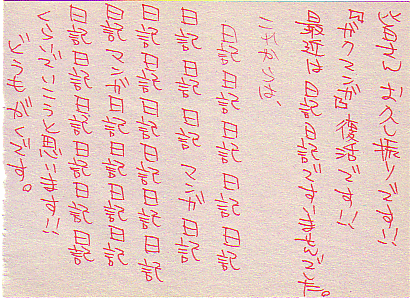 お久し振りです!!
ボクマンガ 復活です!!
最近は 日記日記ですいませんでした。
日記 日記 日記 日記 日記
日記 日記 日記 マンガ 日記
日記 日記 日記 日記 日記 日記
日記 マンガ 日記 日記 日記 日記
日記 日記 日記 日記 日記 日記
くらいでいこうと思います!!